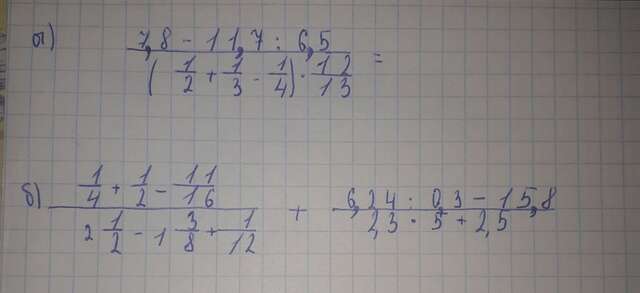 а) 7,8 - 11,7 : 6,5
(1/2 + 1/3 - 1/4) · 12/13 =
б) 1/4 + 1/2 - 11/16
2 1/2 - 1 3/8 + 1/12
+
6,24 : 0,3 - 15,8
2,3 · 5 + 2,5